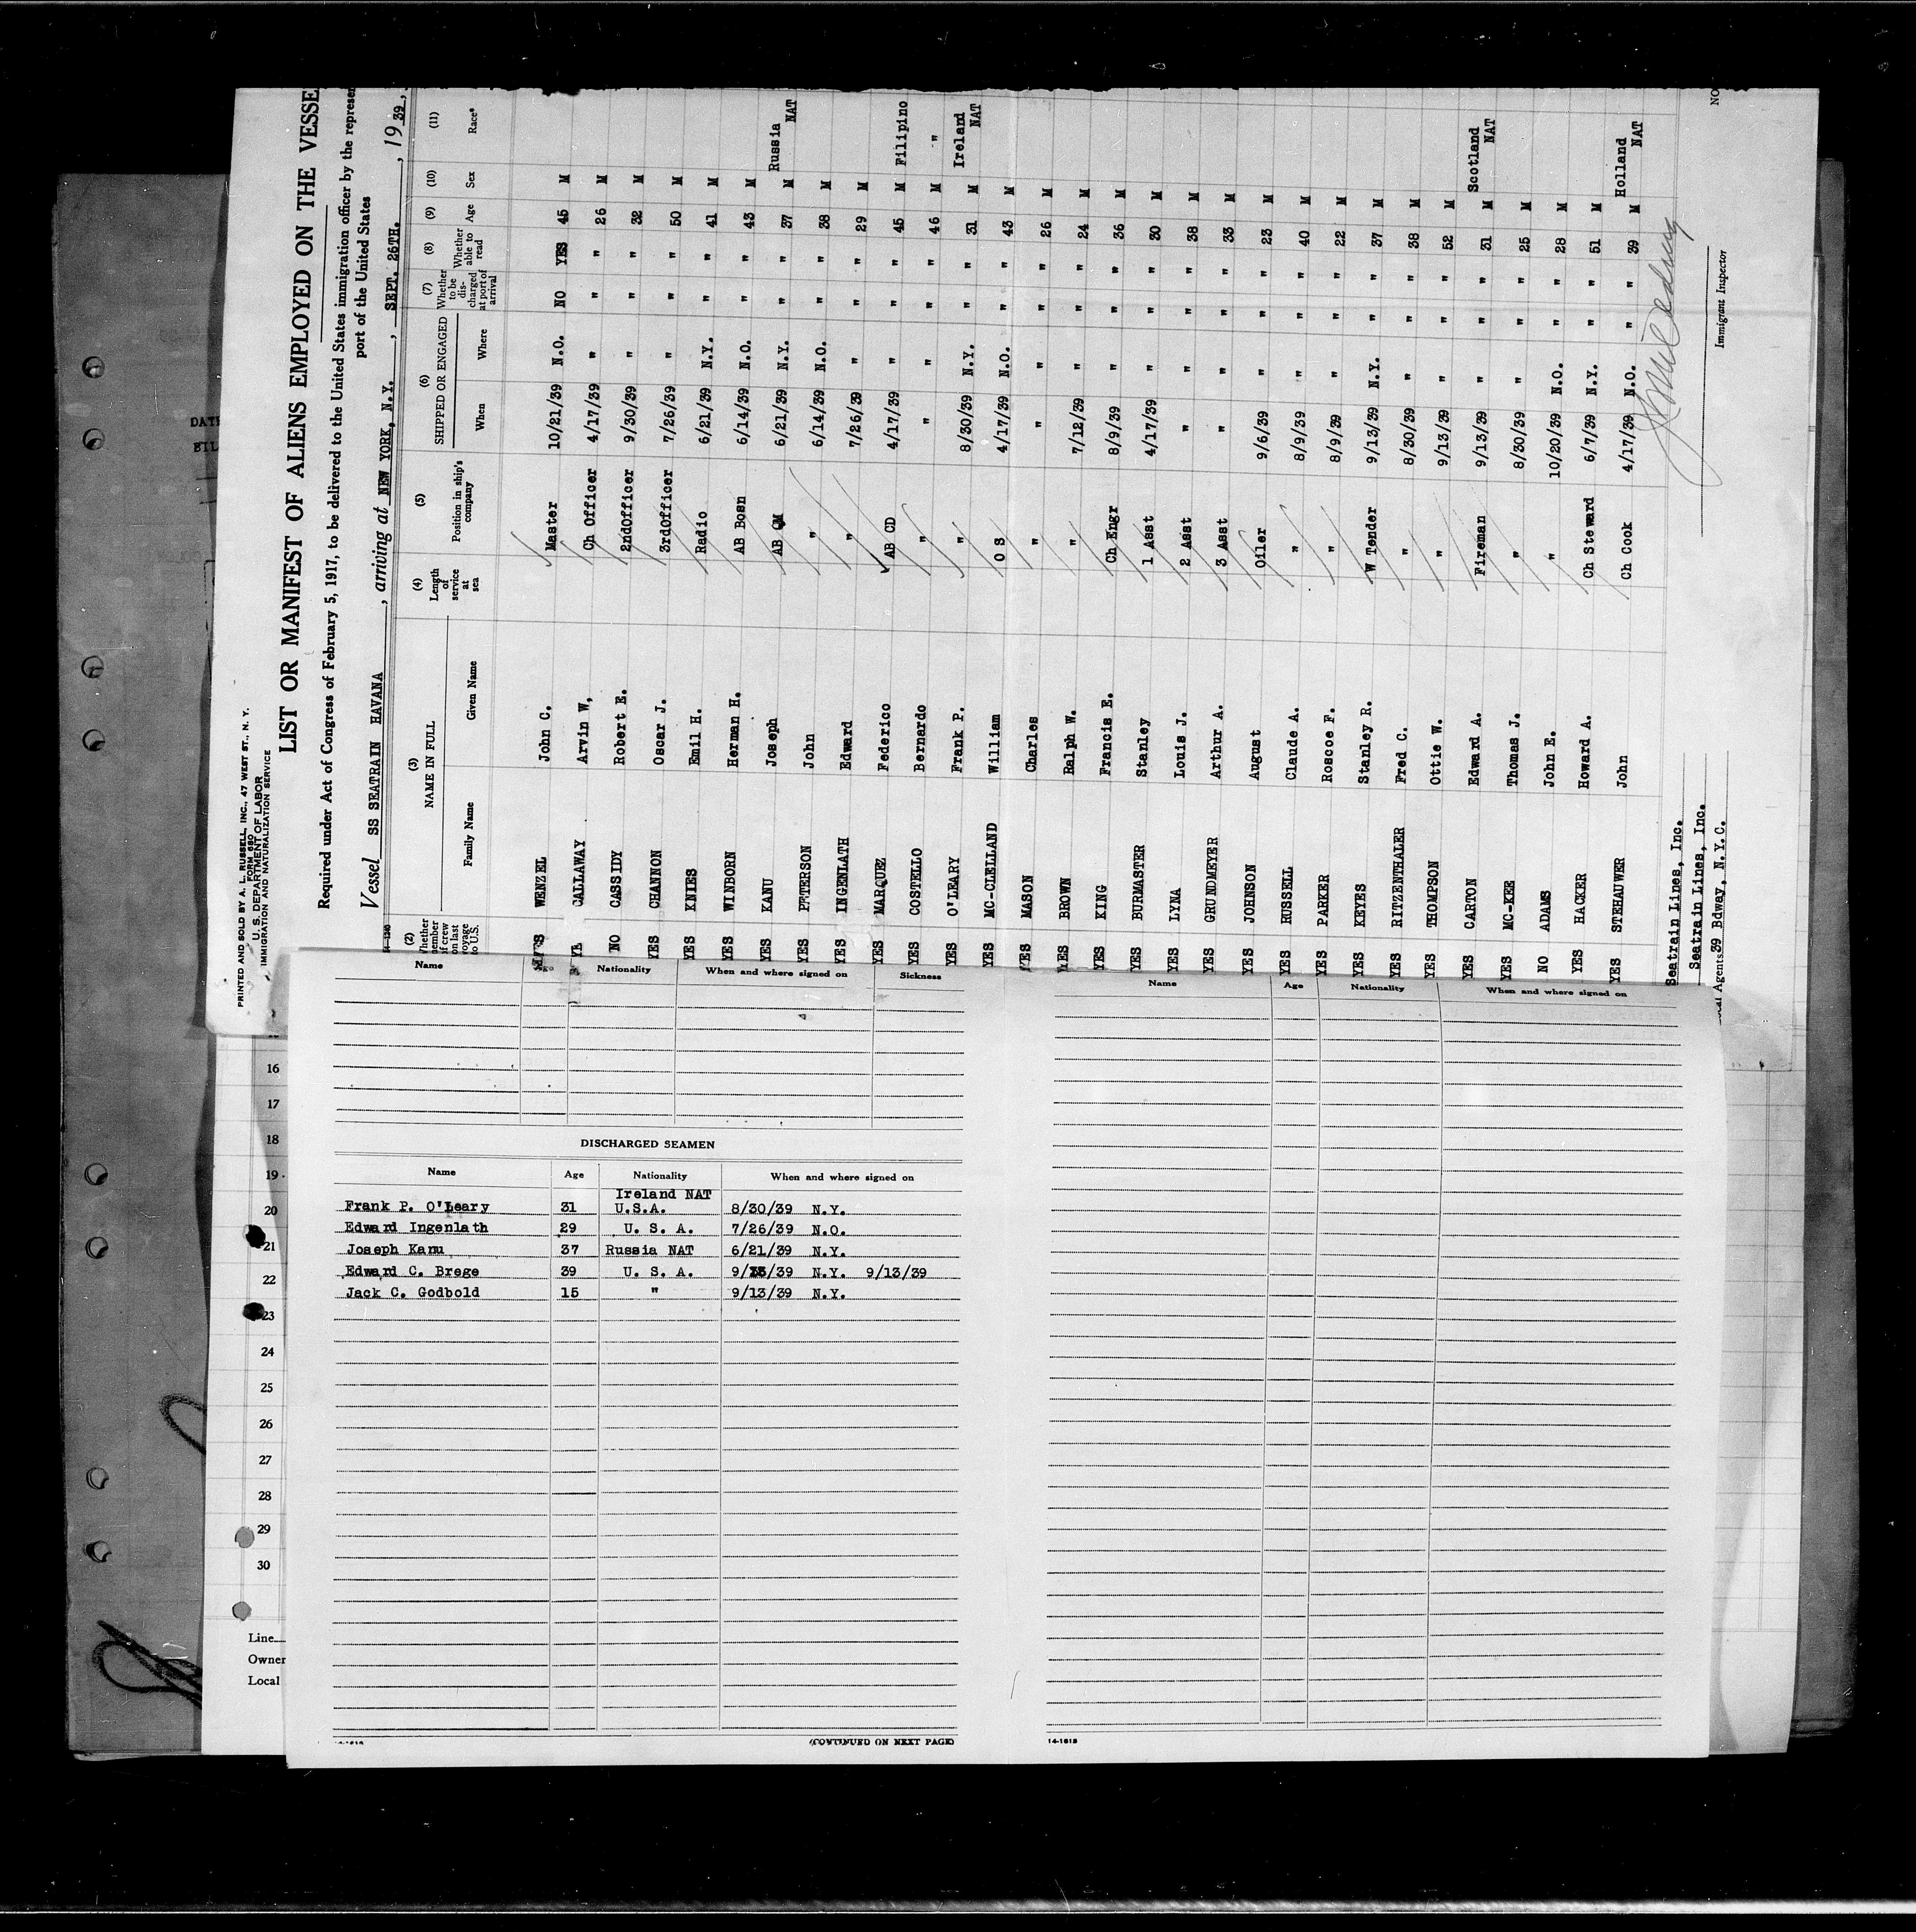 PRINTED AND SOLD BY A. L. RUSSELL, INC., 47 WEST ST., N. Y.
FORM 680
U. S. DEPARTMENT OF LABOR
IMMIGRATION AND NATURALIZATION SERVICE
LIST OR MANIFEST OF ALIENS EMPLOYED ON THE VESSE
Required under Act of Congress of February 5, 1917, to be delivered to the United States immigration officer by the represen
port of the United States
Vessel SS SEATRAIN HAVANA, arriving at NEW YORK, N.Y., SEPT. 26TH., 1939,
(2) (3) (4) (5) (6) (7) (8) (9) (10) (11)
Whether member of crew on last voyage to U.S. NAME IN FULL Family Name Given Name Length of service at sea Position in ship's company SHIPPED OR ENGAGED When Where Whether to be discharged at port of arrival Whether able to read Age Sex Race*
WENZEL John C. Master 10/21/39 N.O. NO YES 45 M
CALLAWAY Arvin W, Ch Officer 4/17/39 " " " 26 M
NO CASSIDY Robert E. 2ndOfficer 9/30/39 " " " 32 M
YES CHANNON Oscar J. 3rdOfficer 7/26/39 " " " 50 M
YES KNIES Emil H. Radio 6/21/39 N.Y. " " 41 M
YES WINBORN Herman H. AB Bosn 6/14/39 N.O. " " 43 M
YES KANU Joseph AB QM 6/21/39 N.Y. " " 37 M Russia NAT
YES PETERSON John " 6/14/39 N.O. " " 38 M
YES INGENLATH Edward " 7/26/39 " " " 29 M
YES MARQUEZ Federico AB CD 4/17/39 " " " 45 M Filipino
YES COSTELLO Bernardo " " " " " 46 M "
YES O'LEARY Frank P. " 8/30/39 N.Y. " " 31 M Ireland NAT
YES MC-CLELLAND William O S 4/17/39 N.O. " " 43 M
YES MASON Charles " " " " " 26 M
YES BROWN Ralph W. " 7/12/39 " " " 24 M
YES KING Francis E. Ch Engr 8/9/39 " " " 36 M
YES BURMASTER Stanley 1 Asst 4/17/39 " " " 30 M
YES LYNA Louis J. 2 Asst " " " " 38 M
YES GRUNDMEYER Arthur A. 3 Asst " " " " 33 M
YES JOHNSON August Oiler 9/6/39 " " " 23 M
YES RUSSELL Claude A. " 8/9/39 " " " 40 M
YES PARKER Roscoe F. " 8/9/39 " " " 22 M
YES KEYES Stanley R. W Tender 9/13/39 N.Y. " " 37 M
YES RITZENTHALER Fred C. " 8/30/39 " " " 38 M
YES THOMPSON Ottie W. " 9/13/39 " " " 52 M
YES CARTON Edward A. Fireman 9/13/39 " " " 31 M Scotland NAT
YES MC-KEE Thomas J. " 8/30/39 " " " 25 M
NO ADAMS John E. " 10/20/39 N.O. " " 28 M
YES HACKER Howard A. Ch Steward 6/7/39 N.Y. " " 51 M
YES STEHAUWER John Ch Cook 4/17/39 N.O. " " 39 M Holland NAT
Seatrain Lines, Inc.
Seatrain Lines, Inc.
Agents 39 Bdway, N.Y.C.
Immigrant Inspector
NO
Name Nationality When and where signed on Sickness
DISCHARGED SEAMEN
Name Age Nationality When and where signed on
Ireland NAT
Frank P. O'Leary 31 U.S.A. 8/30/39 N.Y.
Edward Ingenlath 29 U. S. A. 7/26/39 N.O.
Joseph Kanu 37 Russia NAT 6/21/39 N.Y.
Edward C. Brege 39 U. S. A. 9/13/39 N.Y. 9/13/39
Jack C. Godbold 15 " 9/13/39 N.Y.
(CONTINUED ON NEXT PAGE)
Name Age Nationality When and where signed on
14-1618
16
17
18
19
20
21
22
23
24
25
26
27
28
29
30
Line
Owner
Local